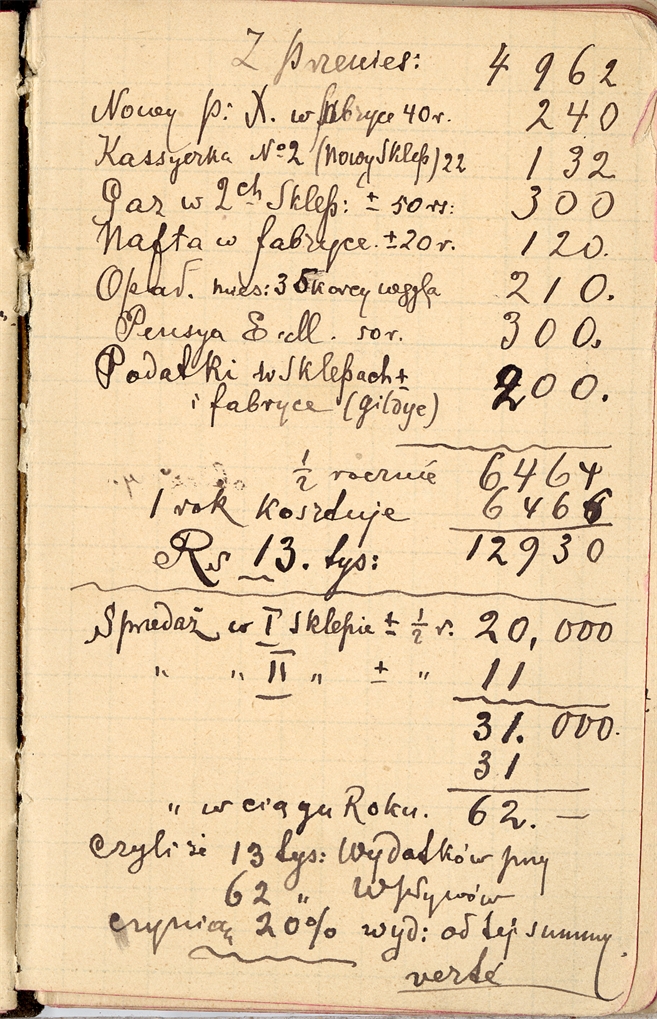 Z przenies: 4 962
Nowy p: X. w fabryce 40r. 240
Kassyerka № 2 (Nowy Sklep) 22 132
Gaz w 2ch Sklep: ± 50 rs: 300
Nafta w fabryce. ± 20 r. 120.
Opał. mies: 35 korcy węgla 210.
Pensya E. M. 50r. 300.
Podatki w Sklepach ± 200.
i fabryce (gildye)
½ rocznie 6464
1 rok kosztuje 6466
Rs 13. tys: 12930
Sprzedaż w I Sklepie ± ½ r. 20,000
" " II " ± " 11
31. 000.
31
" w ciągu Roku. 62. —
czyli że 13 tys: Wydatków przy
62 " Wpływów
czynią 20% wyd: od tej summy.
verte